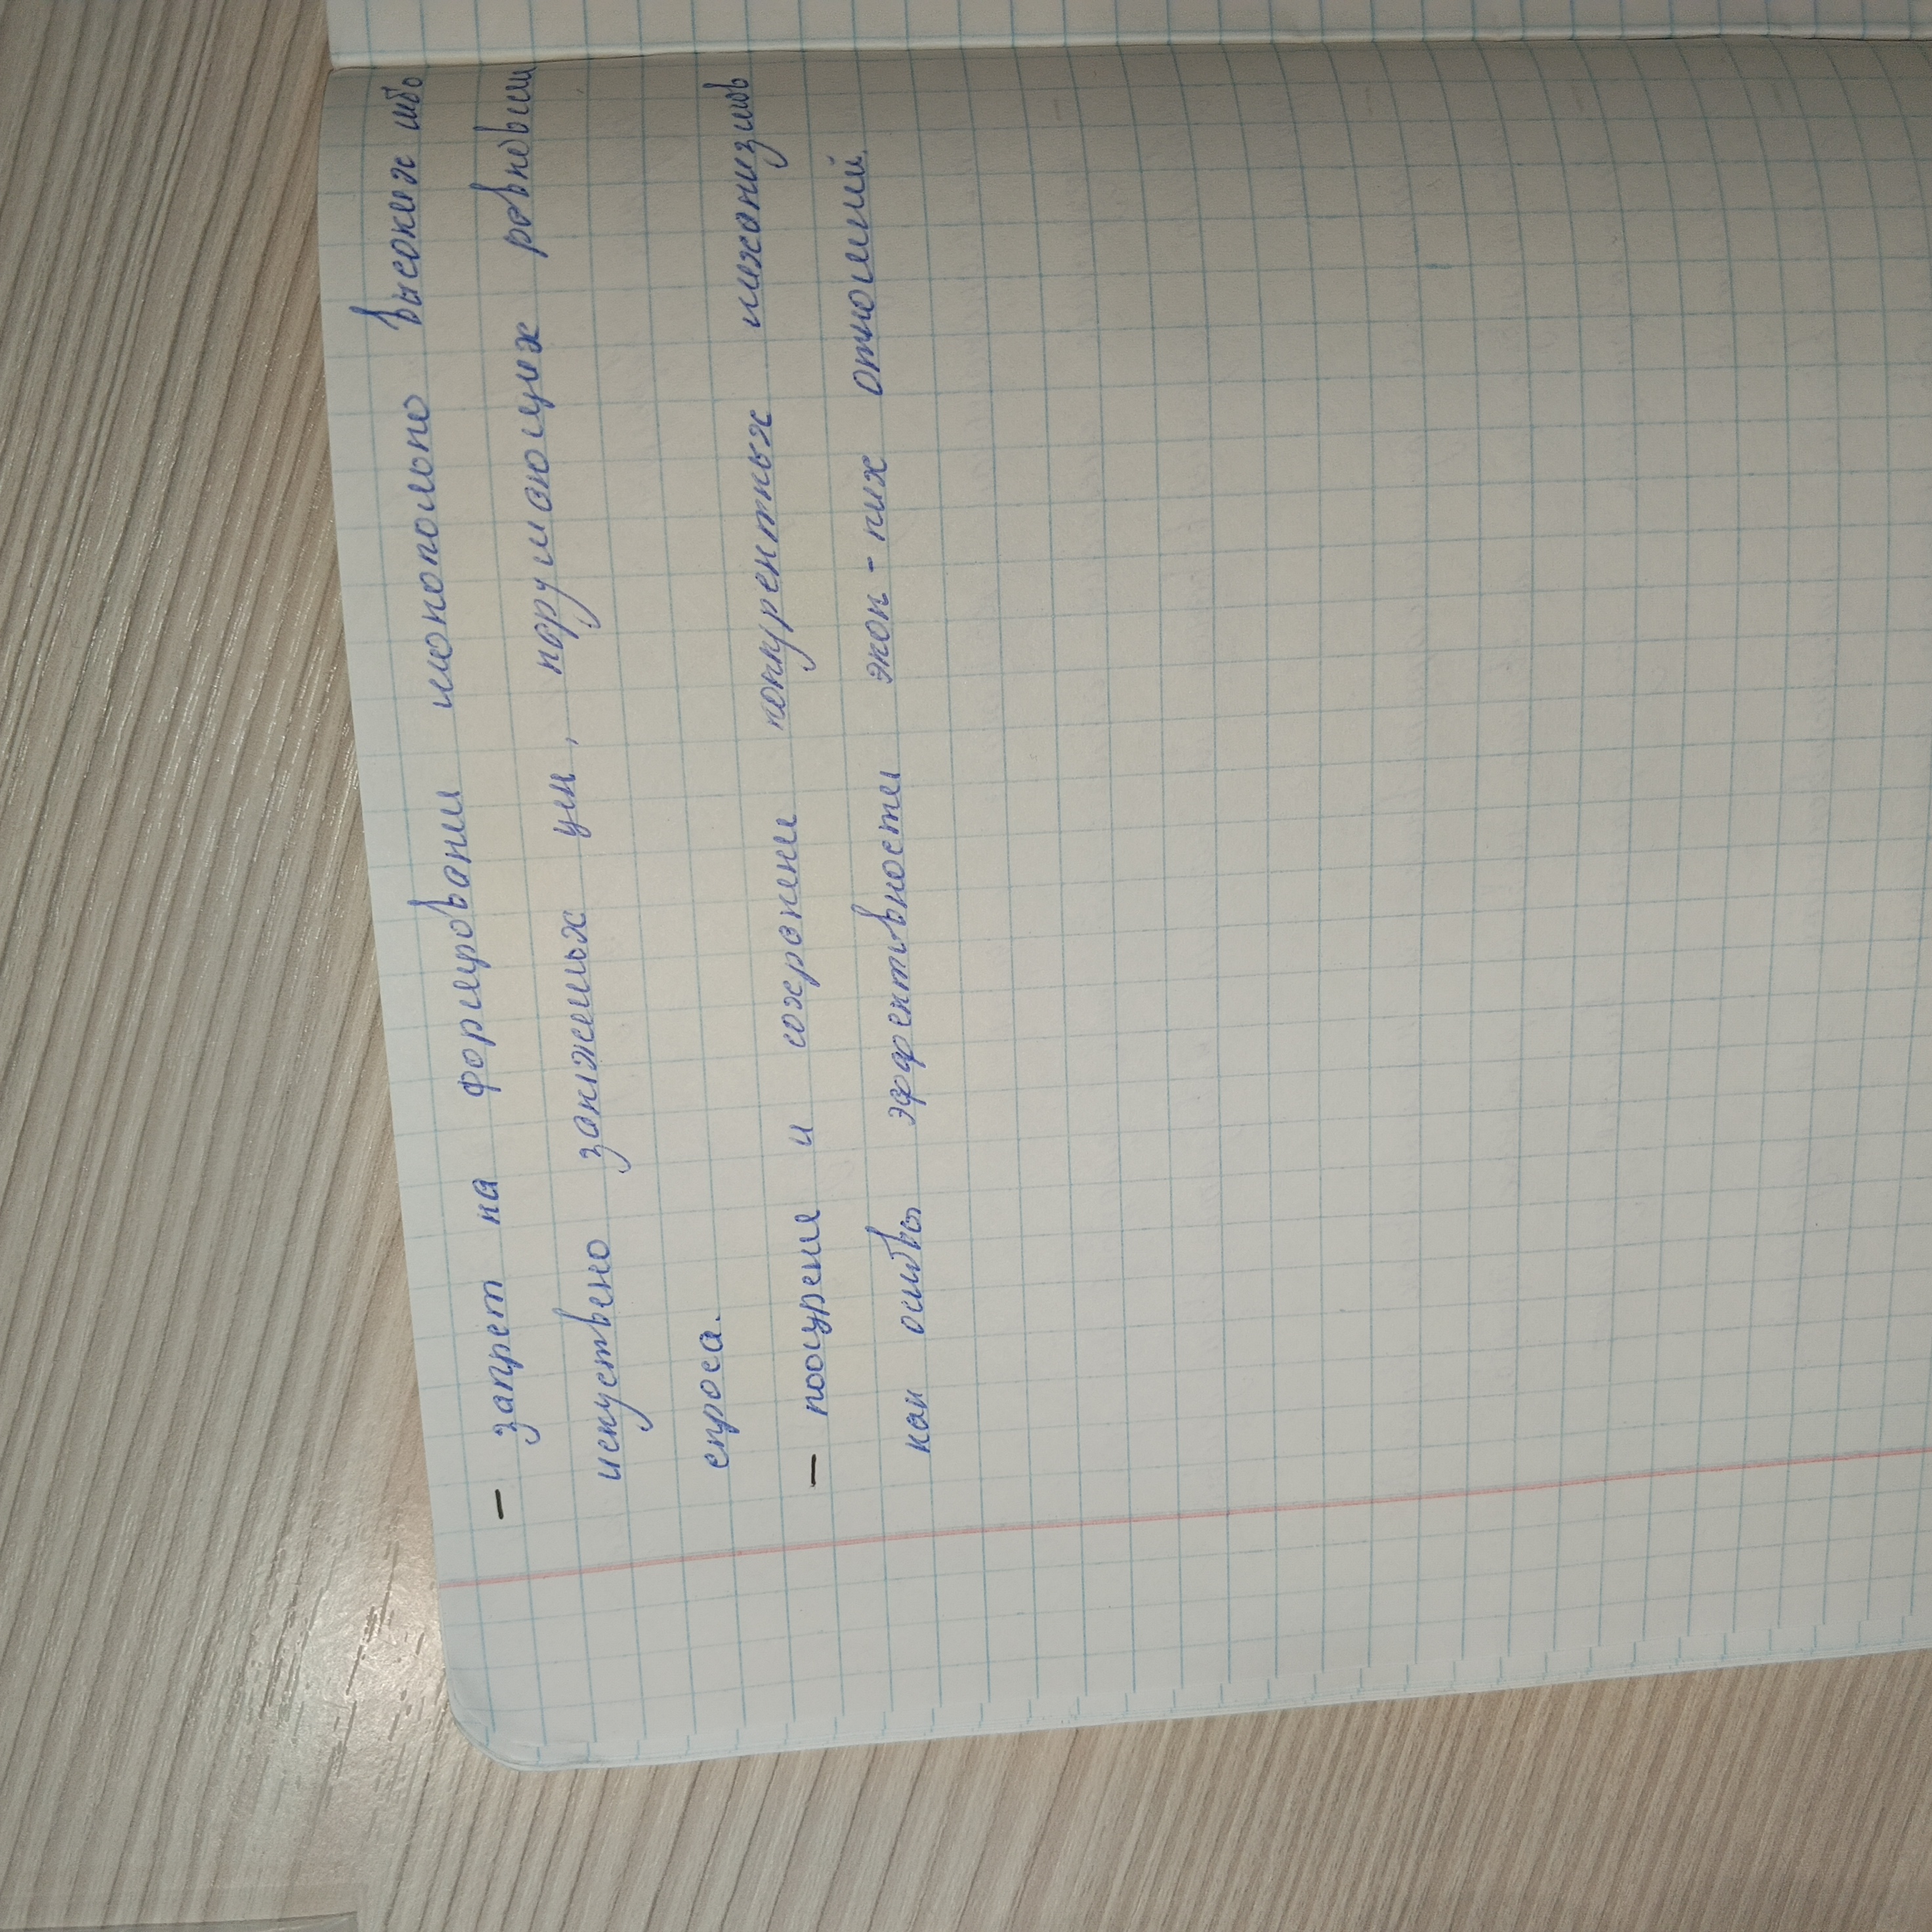 – запрет на формировании монопольно высоких либо
искуствено заниженых цен, нарушающих равновеси
спроса.
– поощрение и сохранени конкрентных механизмов
как основы эффективности экон-ких отношений.